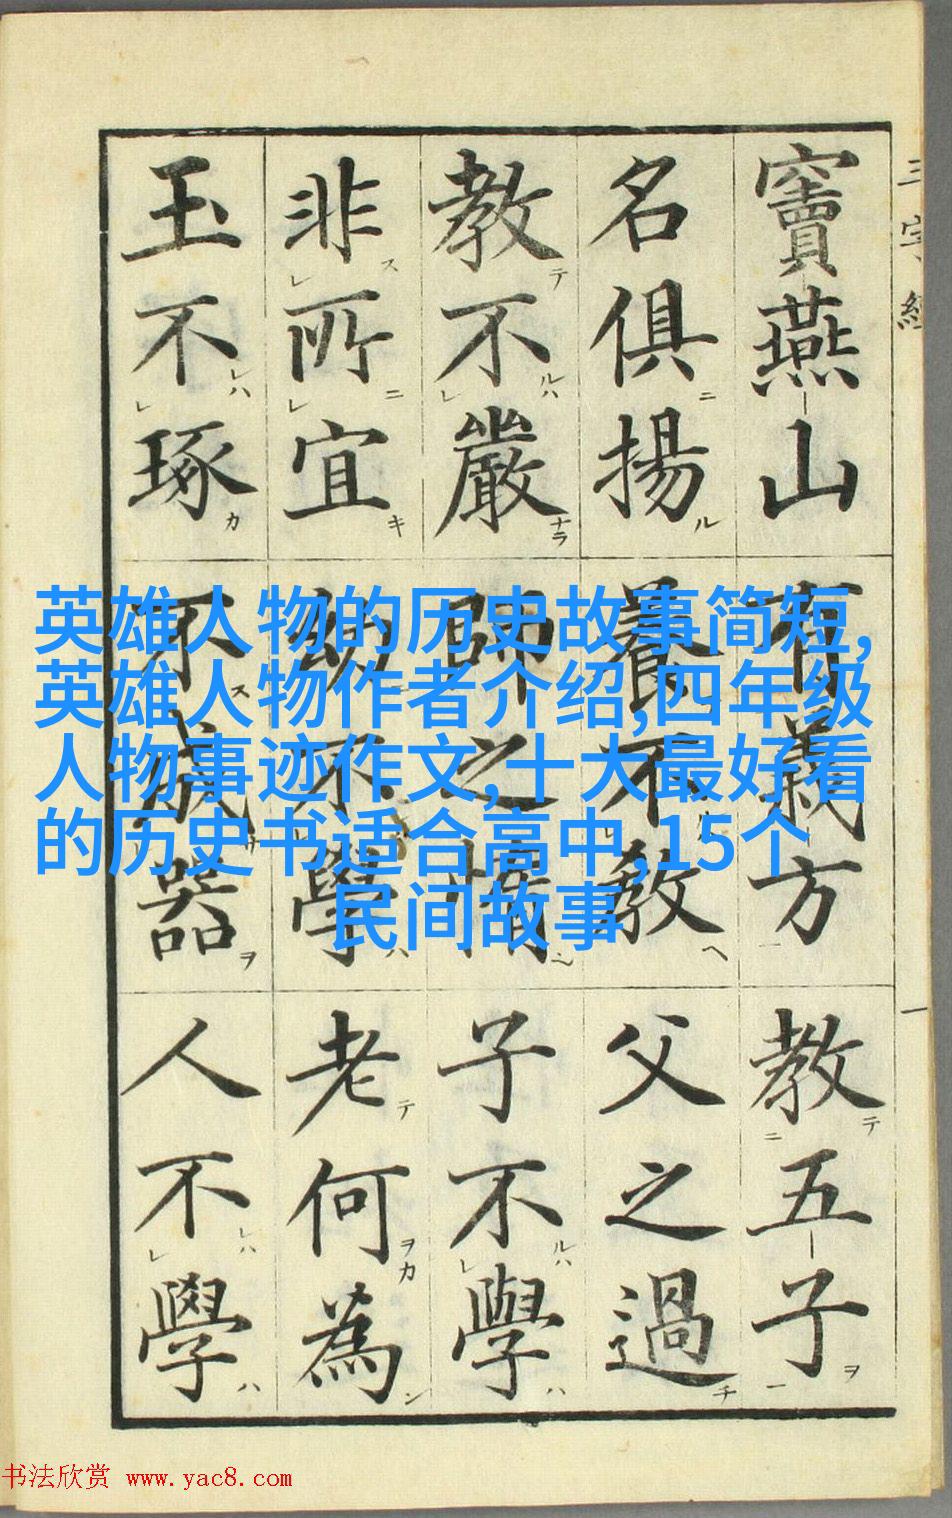 三字經
竇燕山有義方教五子
名俱揚養不教父之過
教不嚴師之惰子不學
非所宜幼不學老何為
玉不琢不成器人不學
一
英雄人物的历史故事简短,
英雄人物作者介绍,四年级
人物事迹作文,十大最好看
的历史书适合高中,15个
民间故事
书法欣赏 www.yac8.com